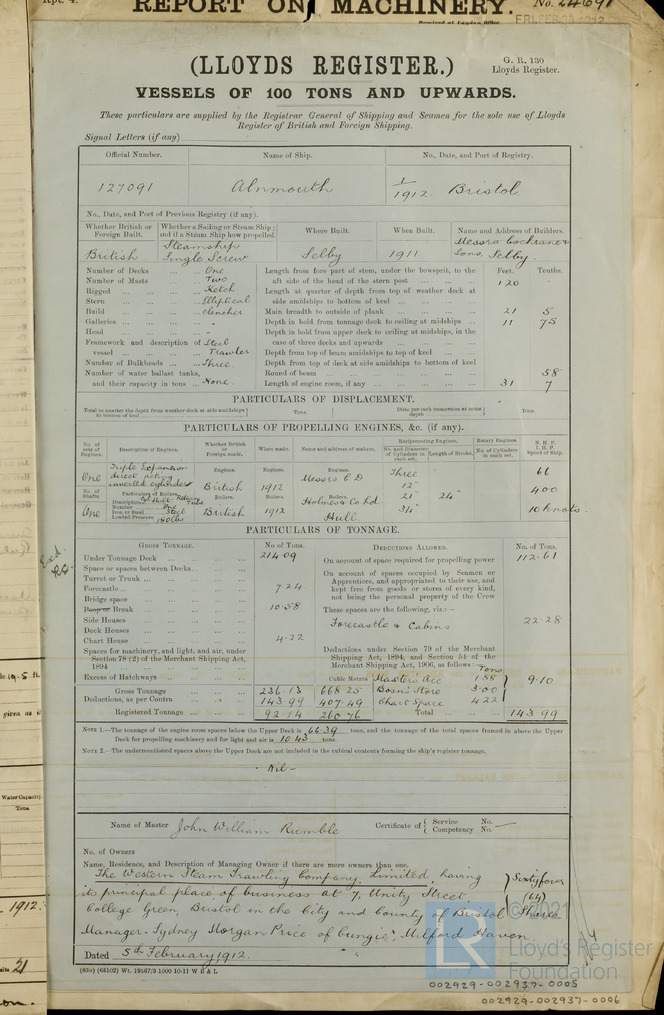 Rpt. 4.
REPORT ON MACHINERY.
No. 24691
Received at London Office
FRI. FEB. 23 1912
(LLOYDS REGISTER.)
G. R. 130
Lloyds Register.
VESSELS OF 100 TONS AND UPWARDS.
These particulars are supplied by the Registrar General of Shipping and Seamen for the sole use of Lloyds
Register of British and Foreign Shipping.
Signal Letters (if any)
Official Number. Name of Ship. No., Date, and Port of Registry.
127091 Alnmouth 1/1912. Bristol
No., Date, and Port of Previous Registry (if any).
Whether British or Foreign Built. Whether a Sailing or Steam Ship; and if a Steam Ship how propelled. Where Built. When Built. Name and Address of Builders.
British Steamship Single Screw Selby 1911 Messrs Cochrane & Sons, Selby.
Number of Decks ... One
Number of Masts ... Two
Rigged ... Ketch
Stern ... Elliptical
Build ... Clencher
Galleries ... -
Head ... -
Framework and description of vessel ... Steel Trawler
Number of Bulkheads ... Three
Number of water ballast tanks, and their capacity in tons ... None.
Feet. Tenths.
Length from fore part of stem, under the bowsprit, to the aft side of the head of the stern post ... 120 -
Length at quarter of depth from top of weather deck at side amidships to bottom of keel ...
Main breadth to outside of plank ... 21 5
Depth in hold from tonnage deck to ceiling at midships ... 11 75
Depth in hold from upper deck to ceiling at midships, in the case of three decks and upwards ...
Depth from top of beam amidships to top of keel ...
Depth from top of deck at side amidships to bottom of keel
Round of beam ... 58
Length of engine room, if any ... 31 7
PARTICULARS OF DISPLACEMENT.
Total to quarter the depth from weather deck at side amidships to bottom of keel Tons. Ditto per inch immersion at same depth Tons.
PARTICULARS OF PROPELLING ENGINES, &c. (if any).
No. of sets of Engines. Description of Engines. Whether British or Foreign made. When made. Name and address of makers. Reciprocating Engines. Rotary Engines. N. H. P. I. H. P. Speed of Ship.
No. and Diameter of Cylinders in each set. Length of Stroke. No. of Cylinders in each set.
One Triple Expansion direct acting inverted cylinder Engines. British Engines. 1912 Engines. Messrs C D Three 12" 21" 34" 24" 66 400 10 knots.
No. of Shafts. Particulars of Boilers. Boilers. Boilers. Boilers. Holmes & Co Ld
One Description
Number One
Iron or Steel Steel
Loaded Pressure 180 lbs British 1912 Hull
PARTICULARS OF TONNAGE.
GROSS TONNAGE. No. of Tons.
Under Tonnage Deck ... 214.09
Space or spaces between Decks ...
Turret or Trunk ...
Forecastle ... 7.24
Bridge space
Poop or Break ... 10.58
Side Houses
Deck Houses
Chart House 4.22
Spaces for machinery, and light, and air, under Section 78 (2) of the Merchant Shipping Act, 1894
Excess of Hatchways ...
Cubic Metres
Gross Tonnage 236.13 668.25
Deductions, as per Contra 143.99 407.49
Registered Tonnage ... 92.14 260.76
DEDUCTIONS ALLOWED. No. of Tons.
On account of space required for propelling power 112.61
On account of spaces occupied by Seamen or Apprentices, and appropriated to their use, and kept free from goods or stores of every kind, not being the personal property of the Crew
These spaces are the following, viz.:—
Forecastle & Cabins 22.28
Deductions under Section 79 of the Merchant Shipping Act, 1894, and Section 54 of the Merchant Shipping Act, 1906, as follows: Tons
Masters Acc 1.88
Bosns Store 3.00
Chart Space 4.22
9.10
Total ... 143.99
NOTE 1.—The tonnage of the engine room spaces below the Upper Deck is 66.39 tons, and the tonnage of the total spaces framed in above the Upper
Deck for propelling machinery and for light and air is 10.43 tons.
NOTE 2.—The undermentioned spaces above the Upper Deck are not included in the cubical contents forming the ship's register tonnage.
- Nil -
Name of Master John William Rumble Certificate of Service No. Competency No.
No. of Owners
Name, Residence, and Description of Managing Owner if there are more owners than one.
The Western Steam Trawling Company, Limited, having Sixtyfour
its principal place of business at 7, Unity Street (64)
College Green, Bristol in the City and County of Bristol Shares
Manager - Sydney Morgan Price of Milford Haven
Dated 5th February 1912.
(83o) (65102) Wt. 19567/3 1000 10-11 W B & L
© 2021
LR
Lloyd's Register
Foundation
002929-002937-0005
002929-002937-0006
given as
Water Capacity
Tons.
1912.
21